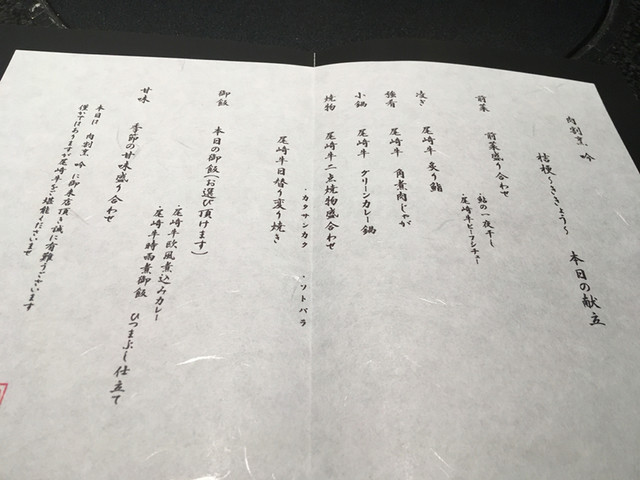 肉割烹 吟
桔梗〜ききょう〜 本日の献立
前菜 前菜盛り合わせ
・鮎の一夜干し
・尾崎牛ビーフシチュー
凌ぎ 尾崎牛 炙り鮨
強肴 尾崎牛 角煮肉じゃが
小鍋 尾崎牛 グリーンカレー鍋
焼物 尾崎牛二点焼物盛合わせ
・カタサンカク ・ソトバラ
尾崎牛日替り変り焼き
御飯 本日の御飯(お選び頂けます)
・尾崎牛欧風煮込みカレー
・尾崎牛時雨煮御飯 ひつまぶし仕立て
甘味 季節の甘味盛り合わせ
本日は 肉割烹 吟 に御来店頂き誠に有難うございます
僅かではありますが尾崎牛をご堪能くださいませ